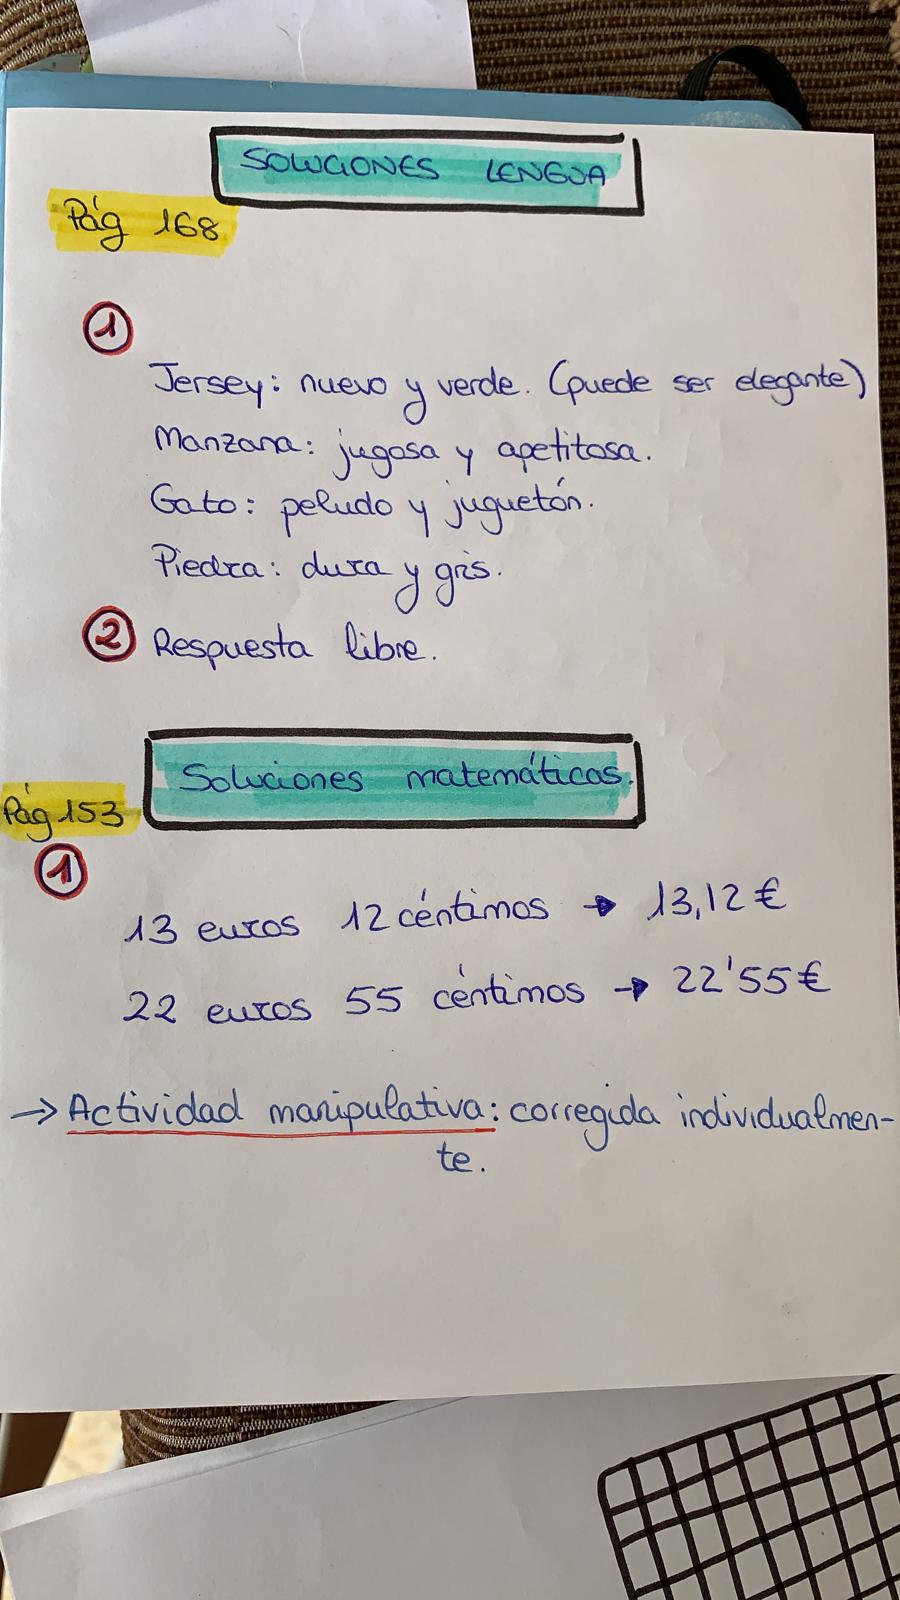 SOLUCIONES LENGUA
Pág 168
1
Jersey: nuevo y verde. (puede ser elegante)
Manzana: jugosa y apetitosa.
Gato: peludo y juguetón.
Piedra: dura y gris.
2 Respuesta libre.
Soluciones matemáticas.
Pág 153
1
13 euros 12 céntimos → 13,12€
22 euros 55 céntimos → 22'55€
→ Actividad manipulativa: corregida individualmen-
te.